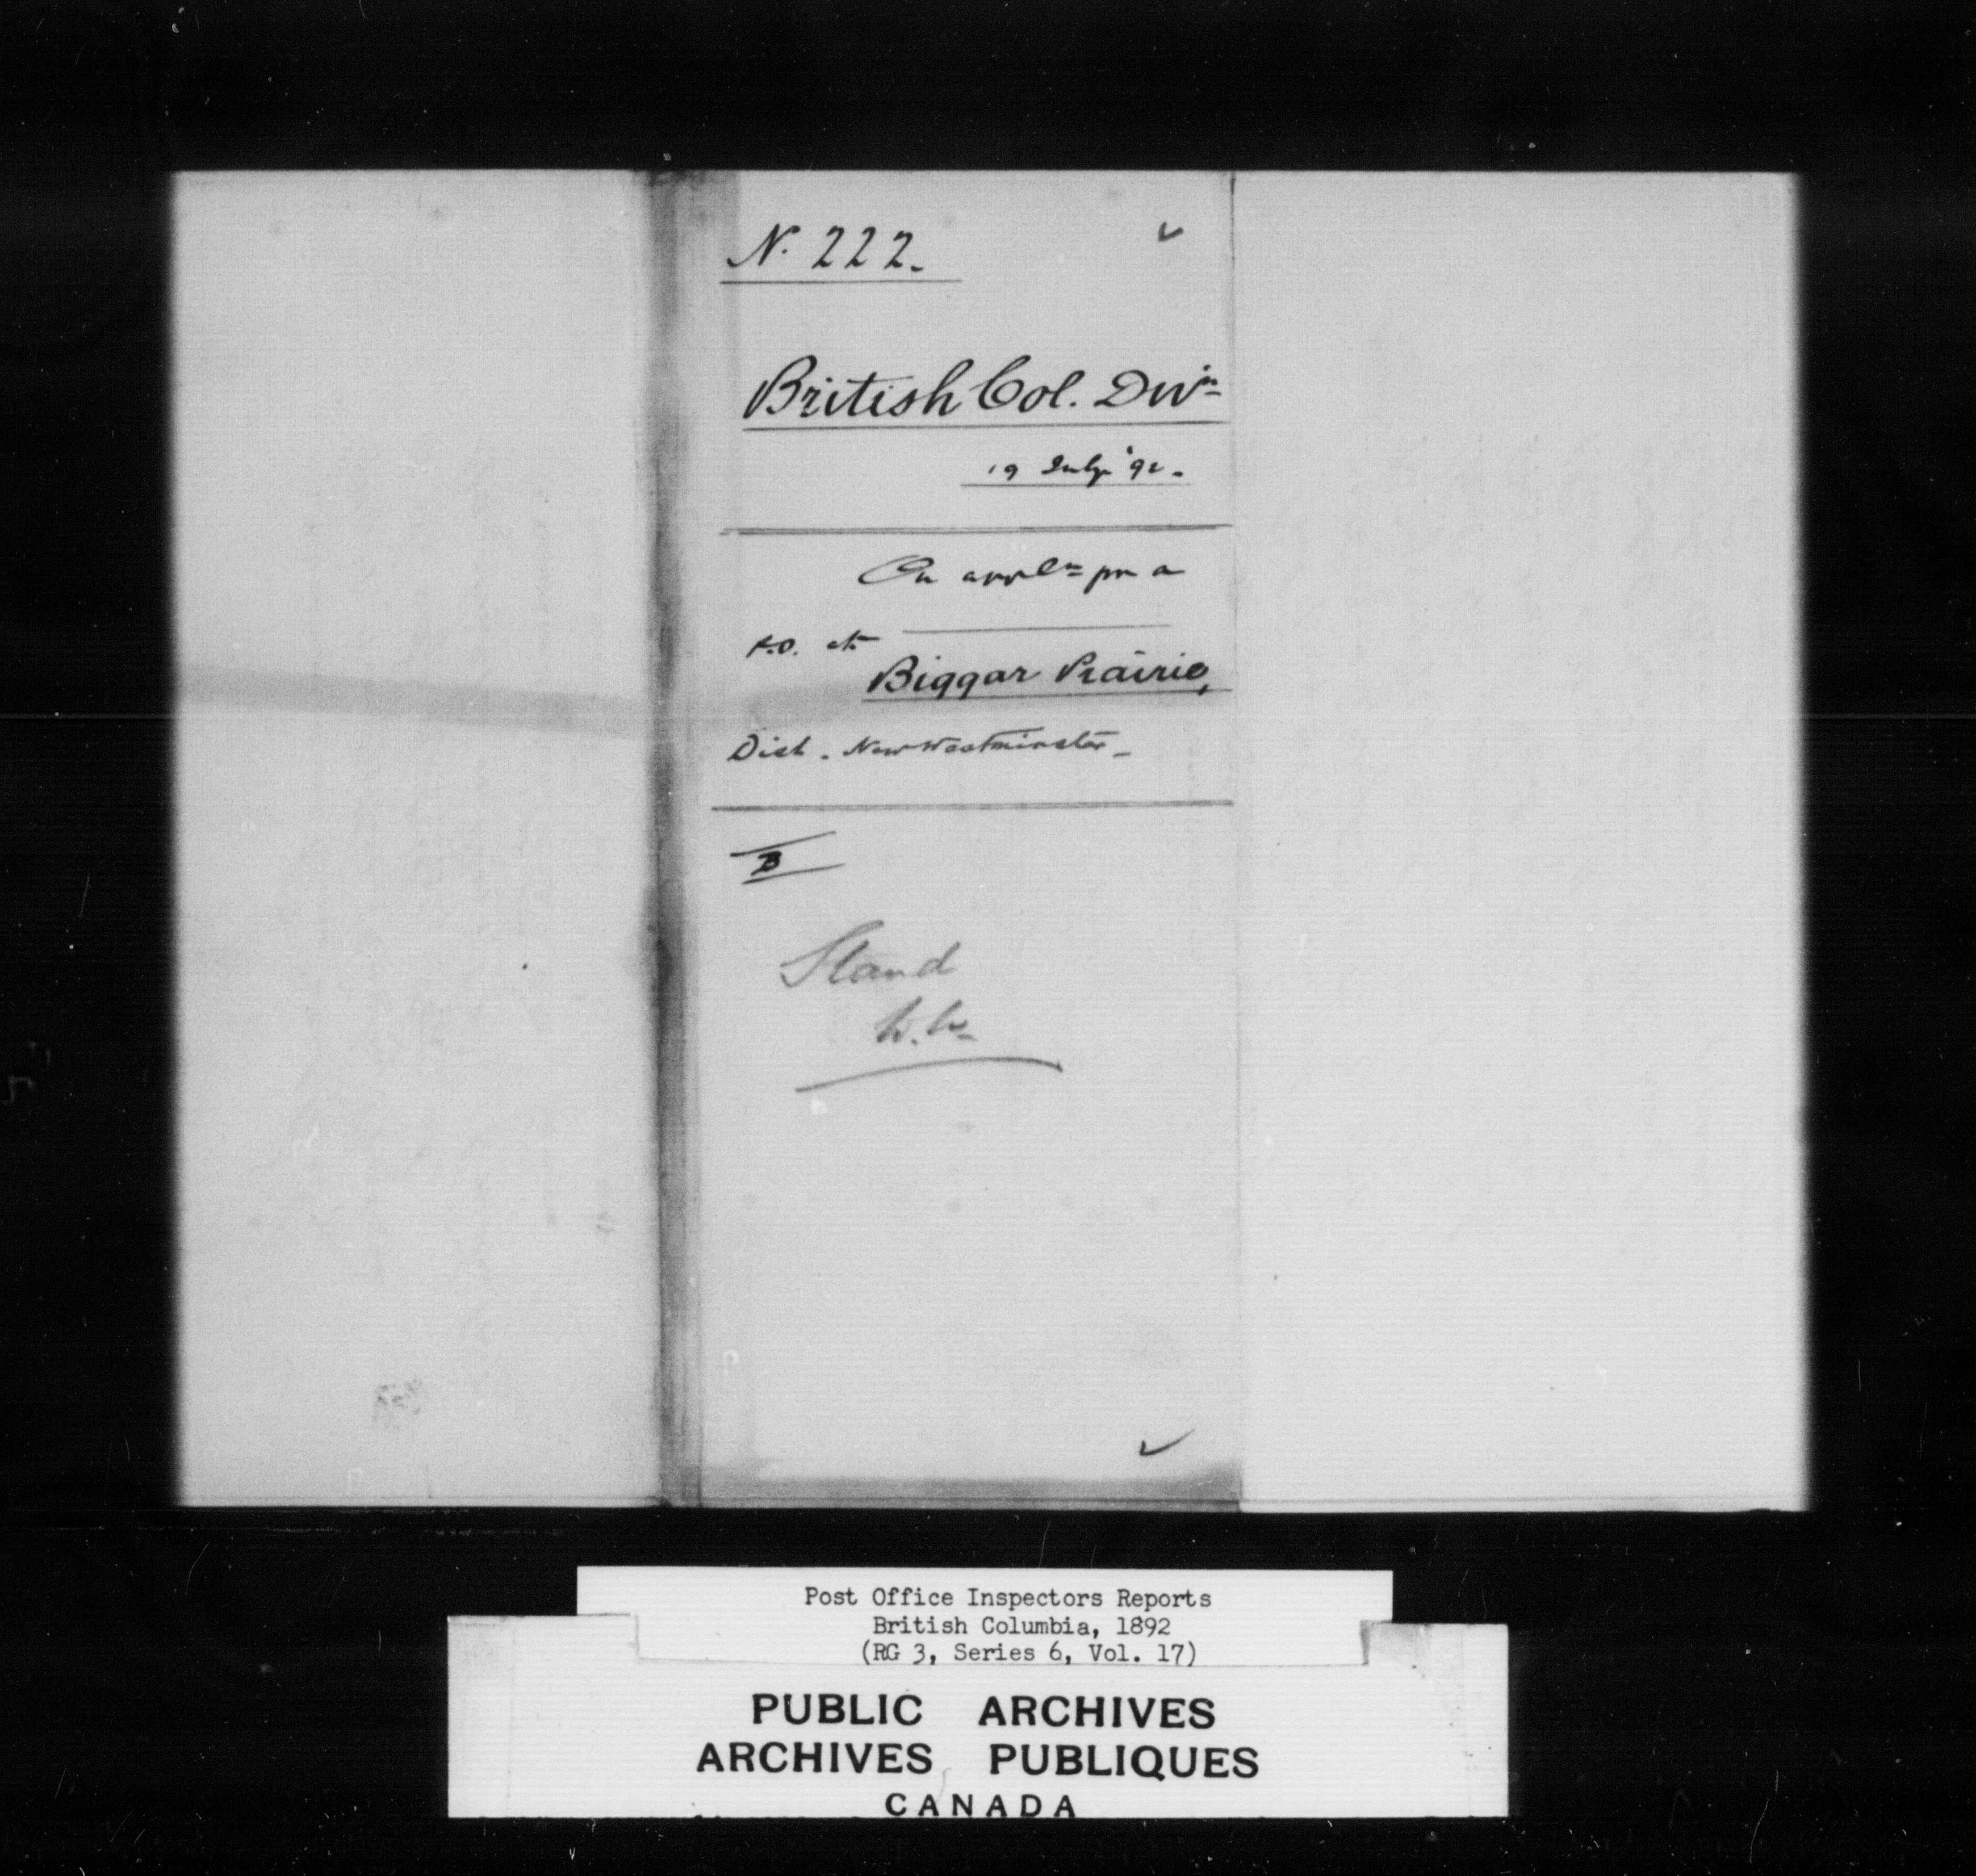 N. 222.
British Col. Divn
19 July '92.
On appln for a
P.O. at
Biggar Prairie,
Dist. New Westminster
B
Stand
Post Office Inspectors Reports
British Columbia, 1892
(RG 3, Series 6, Vol. 17)
PUBLIC ARCHIVES
ARCHIVES PUBLIQUES
CANADA